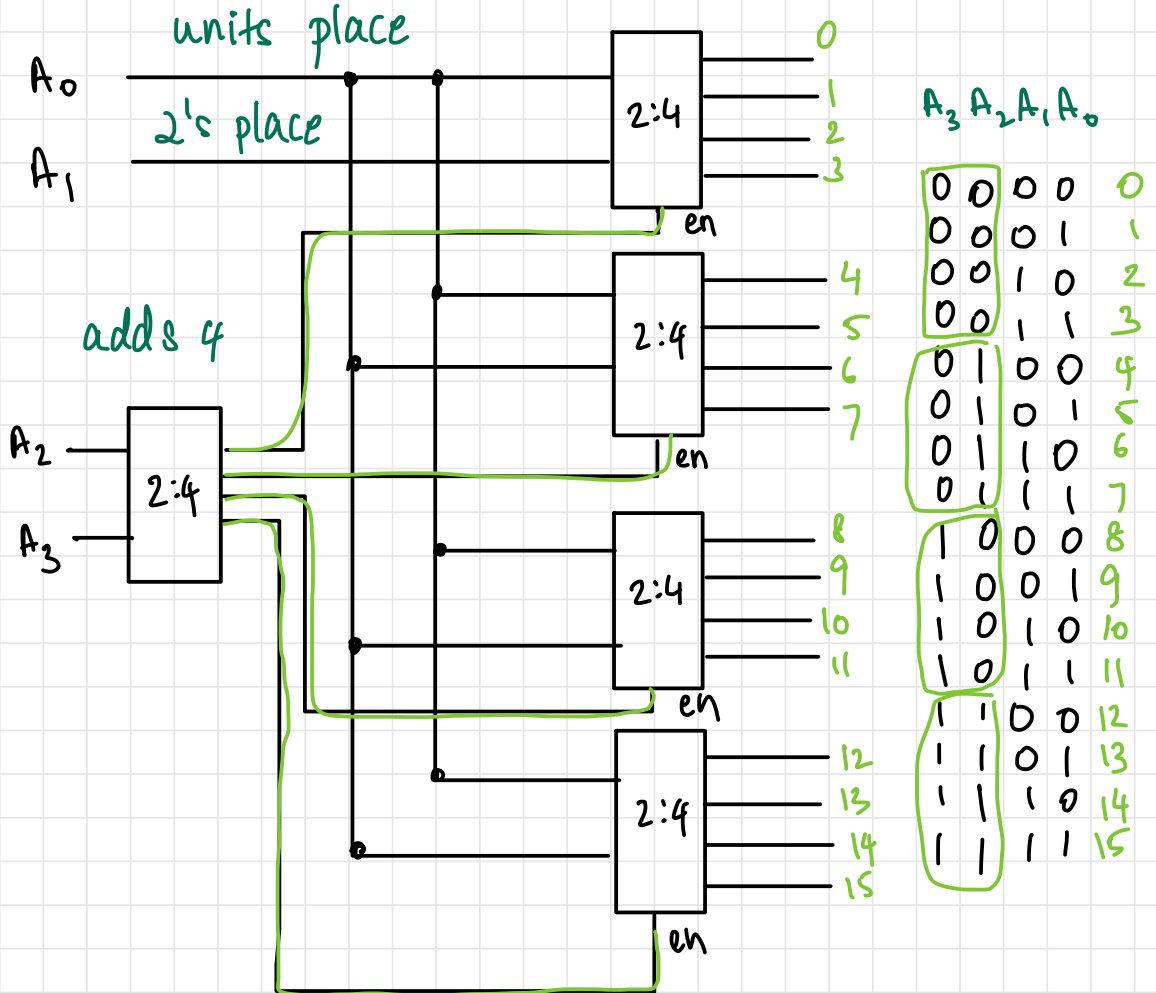 units place
A₀
2's place
A₁
2:4
0
1
2
3
en
adds 4
A₂
A₃
2:4
2:4
4
5
6
7
en
2:4
8
9
10
11
en
2:4
12
13
14
15
en
A₃ A₂ A₁ A₀
0 0 0 0 0
0 0 0 1 1
0 0 1 0 2
0 0 1 1 3
0 1 0 0 4
0 1 0 1 5
0 1 1 0 6
0 1 1 1 7
1 0 0 0 8
1 0 0 1 9
1 0 1 0 10
1 0 1 1 11
1 1 0 0 12
1 1 0 1 13
1 1 1 0 14
1 1 1 1 15